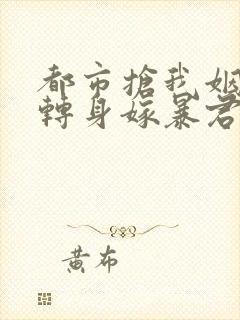 都市搶我姻
轉身嫁暴君
黃布